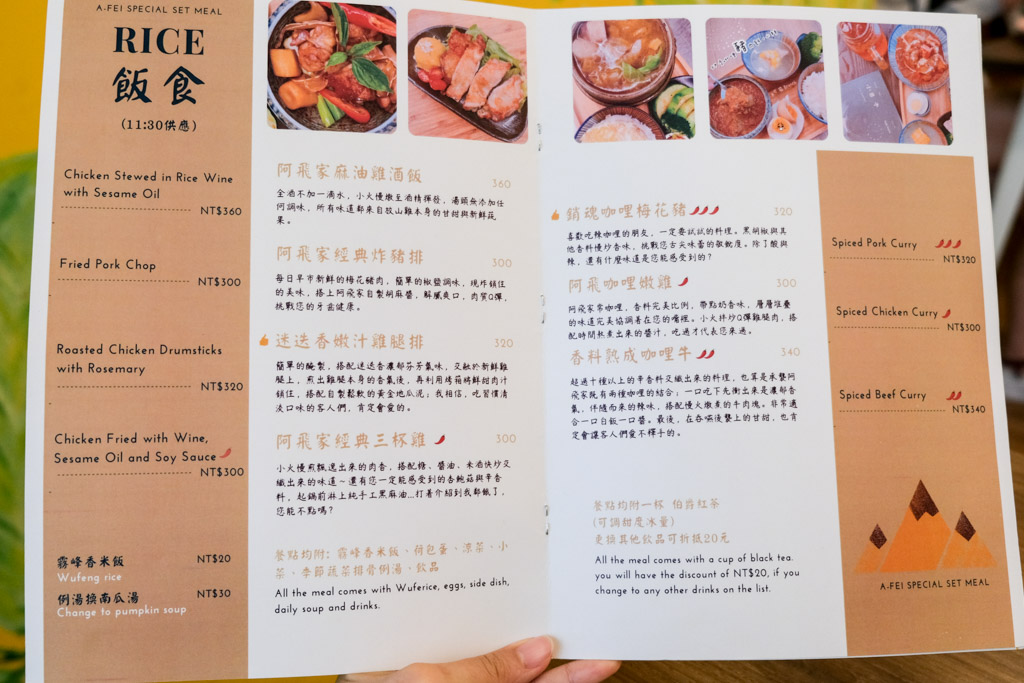 A-FEI SPECIAL SET MEAL
RICE
飯食
(11:30供應)
Chicken Stewed in Rice Wine
with Sesame Oil
NT$360
Fried Pork Chop
NT$300
Roasted Chicken Drumsticks
with Rosemary
NT$320
Chicken Fried with Wine,
Sesame Oil and Soy Sauce
NT$300
霧峰香米飯 NT$20
Wufeng rice
例湯換南瓜湯 NT$30
Change to pumpkin soup
阿飛家麻油雞酒飯 360
全酒不加一滴水，小火慢燉至酒精揮發，湯頭無添加任
何調味，所有味道都來自放山雞本身的甘甜與新鮮蔬
果。
阿飛家經典炸豬排 300
每日早市新鮮的梅花豬肉，簡單的椒鹽調味，現炸鎖住
的美味，搭上阿飛家自製胡麻醬，解膩爽口，肉質Q彈，
挑戰您的牙齒健康。
迷迭香嫩汁雞腿排 320
簡單的醃製，搭配迷迭香濃郁芬芳氣味，交融於新鮮雞
腿上，煎出雞腿本身的香氣後，再利用烤箱將鮮甜肉汁
鎖住，搭配自製鬆軟的黃金地瓜泥；我相信，吃習慣清
淡口味的客人們，肯定會愛的。
阿飛家經典三杯雞 300
小火慢煎飄逸出來的肉香，搭配糖、醬油、米酒快炒交
織出來的味道～還有您一定能感受到的杏鮑菇與辛香
料，起鍋前淋上純手工黑麻油...打著介紹到我都餓了，
您能不點嗎？
餐點均附：霧峰香米飯、荷包蛋、涼菜、小
菜、季節蔬菜排骨例湯、飲品
All the meal comes with Wuferice, eggs, side dish,
daily soup and drinks.
銷魂咖哩梅花豬 320
喜歡吃辣咖哩的朋友，一定要試試的料理。黑胡椒與其
他香料慢炒香味，挑戰您舌尖味蕾的敏銳度。除了酸與
辣，還有什麼味道是您能感受到的？
阿飛咖哩嫩雞 300
阿飛家常咖哩，香料完美比例，帶點奶香味，層層堆疊
的味道完美協調著在您的嘴裡。小火拌炒Q彈雞腿肉，搭
配時間熬煮出來的醬汁，吃過才代表您來過。
香料熟成咖哩牛 340
超過十種以上的辛香料交織出來的料理，也算是承襲阿
飛家既有兩種咖哩的結合；一口吃下先衝出來是濃郁香
氣，伴隨而來的辣味，搭配慢火燉煮的牛肉塊。非常適
合一口白飯一口醬。最後，在吞嚥後襲上的甘甜，也肯
定會讓客人們愛不釋手的。
餐點均附一杯 伯爵紅茶
(可調甜度冰量)
更換其他飲品可折抵20元
All the meal comes with a cup of black tea.
you will have the discount of NT$20, if you
change to any other drinks on the list.
Spiced Pork Curry
NT$320
Spiced Chicken Curry
NT$300
Spiced Beef Curry
NT$340
A-FEI SPECIAL SET MEAL